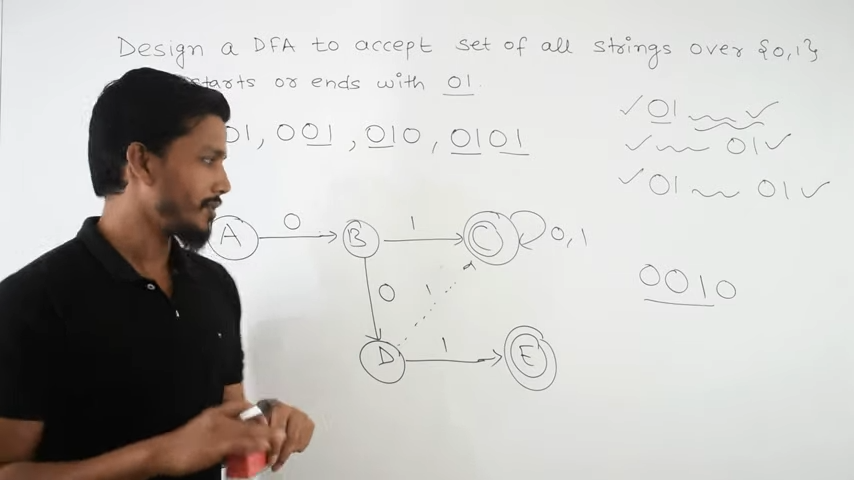 Design a DFA to accept set of all strings over {0,1}
starts or ends with 01.
01, 001, 010, 0101
✓ 01 ✓
✓ 01 ✓
✓ 01 01 ✓
A 0 B 1 C 0,1
0 1
0010
D 1 E